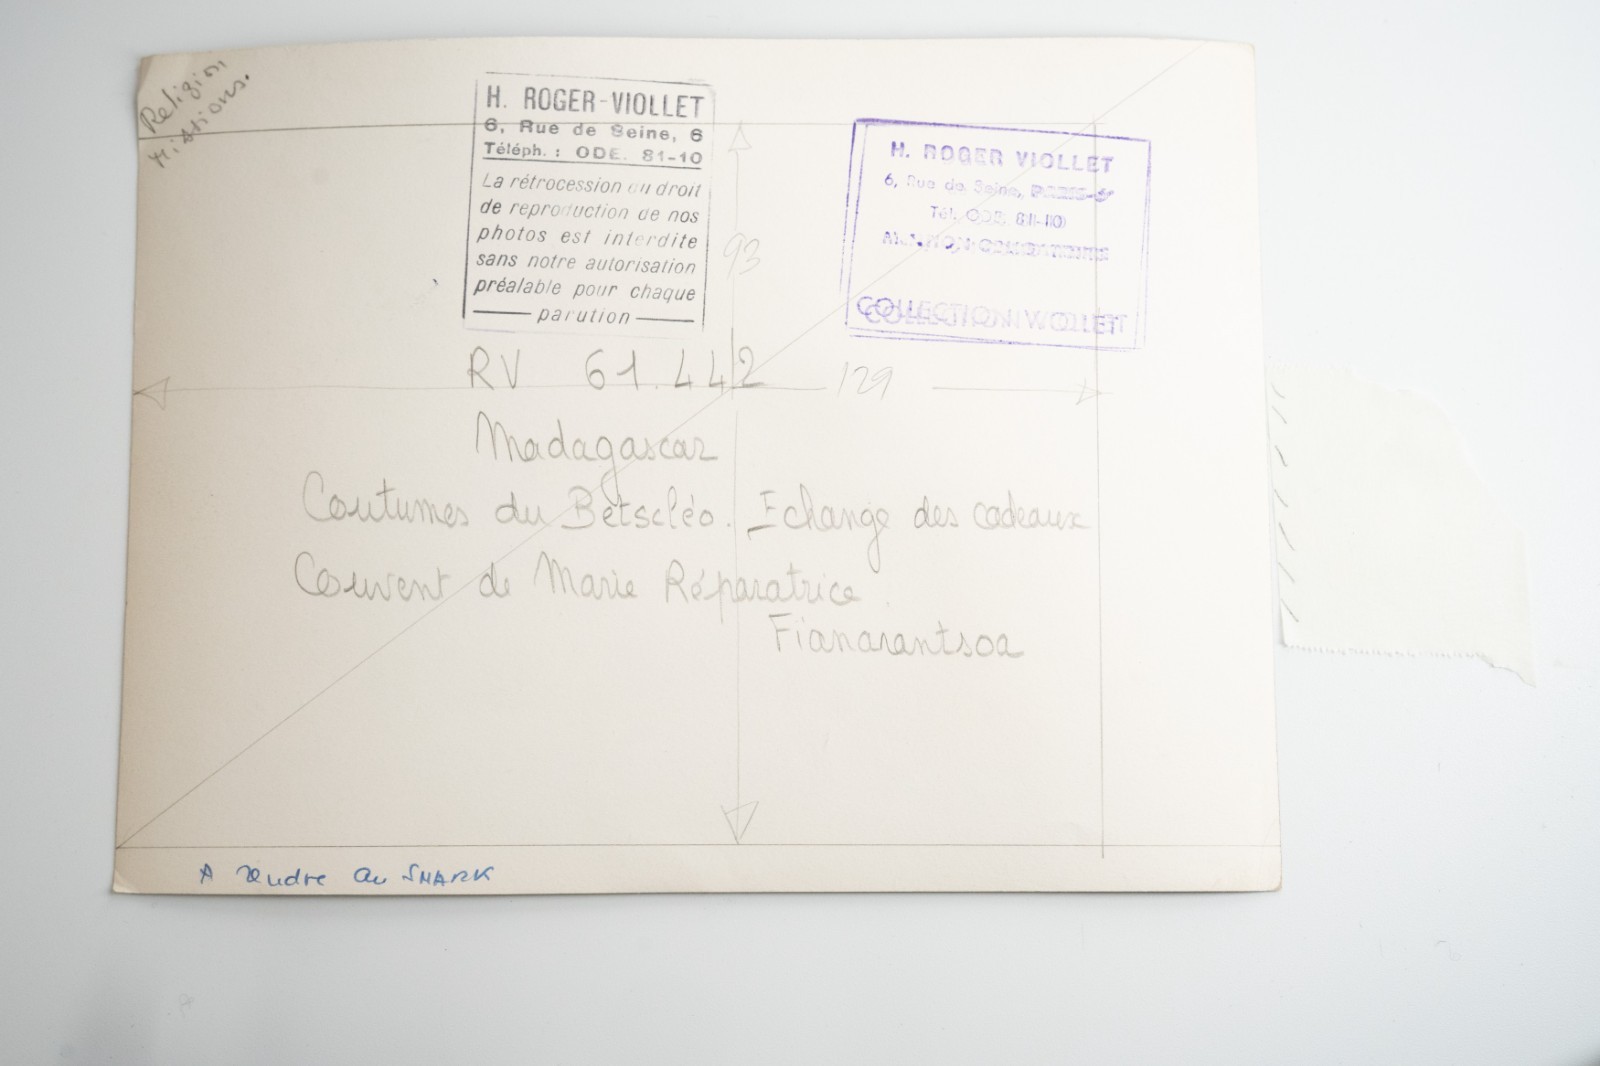 Religion
Missions.
H. ROGER-VIOLLET
6, Rue de Seine, 6
Téléph. : ODE. 81-10
La rétrocession du droit
de reproduction de nos
photos est interdite
sans notre autorisation
préalable pour chaque
parution
H. ROGER VIOLLET
6, Rue de Seine, PARIS-6e
Tél. ODE 81-10
COLLECTION VIOLLET
93
RV 61.442
129
Madagascar
Coutumes du Betscléo. Echange des cadeaux
Couvent de Marie Réparatrice.
Fianarantsoa
A rendre au SNARK